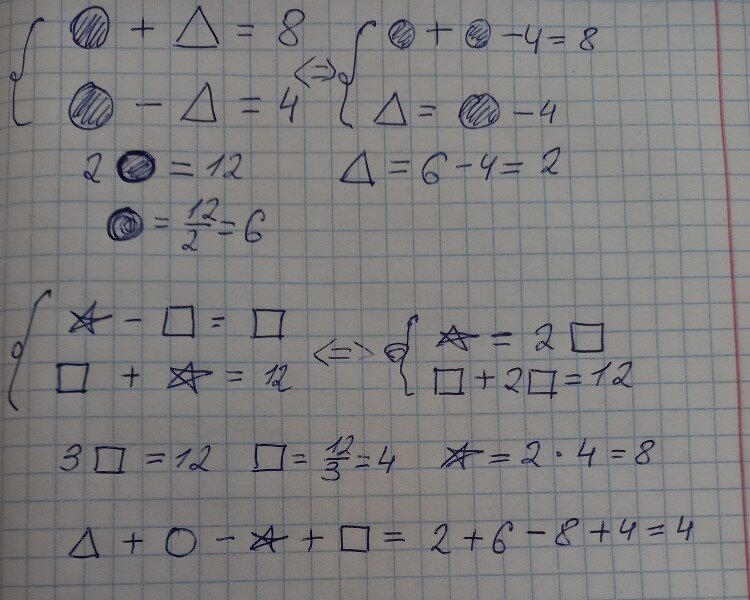 { ● + △ = 8 <=> { ● + ● - 4 = 8
● - △ = 4 △ = ● - 4
2 ● = 12 △ = 6 - 4 = 2
● = 12/2 = 6
{ ☆ - □ = □ <=> { ☆ = 2 □
□ + ☆ = 12 □ + 2 □ = 12
3 □ = 12 □ = 12/3 = 4 ☆ = 2 · 4 = 8
△ + ○ - ☆ + □ = 2 + 6 - 8 + 4 = 4